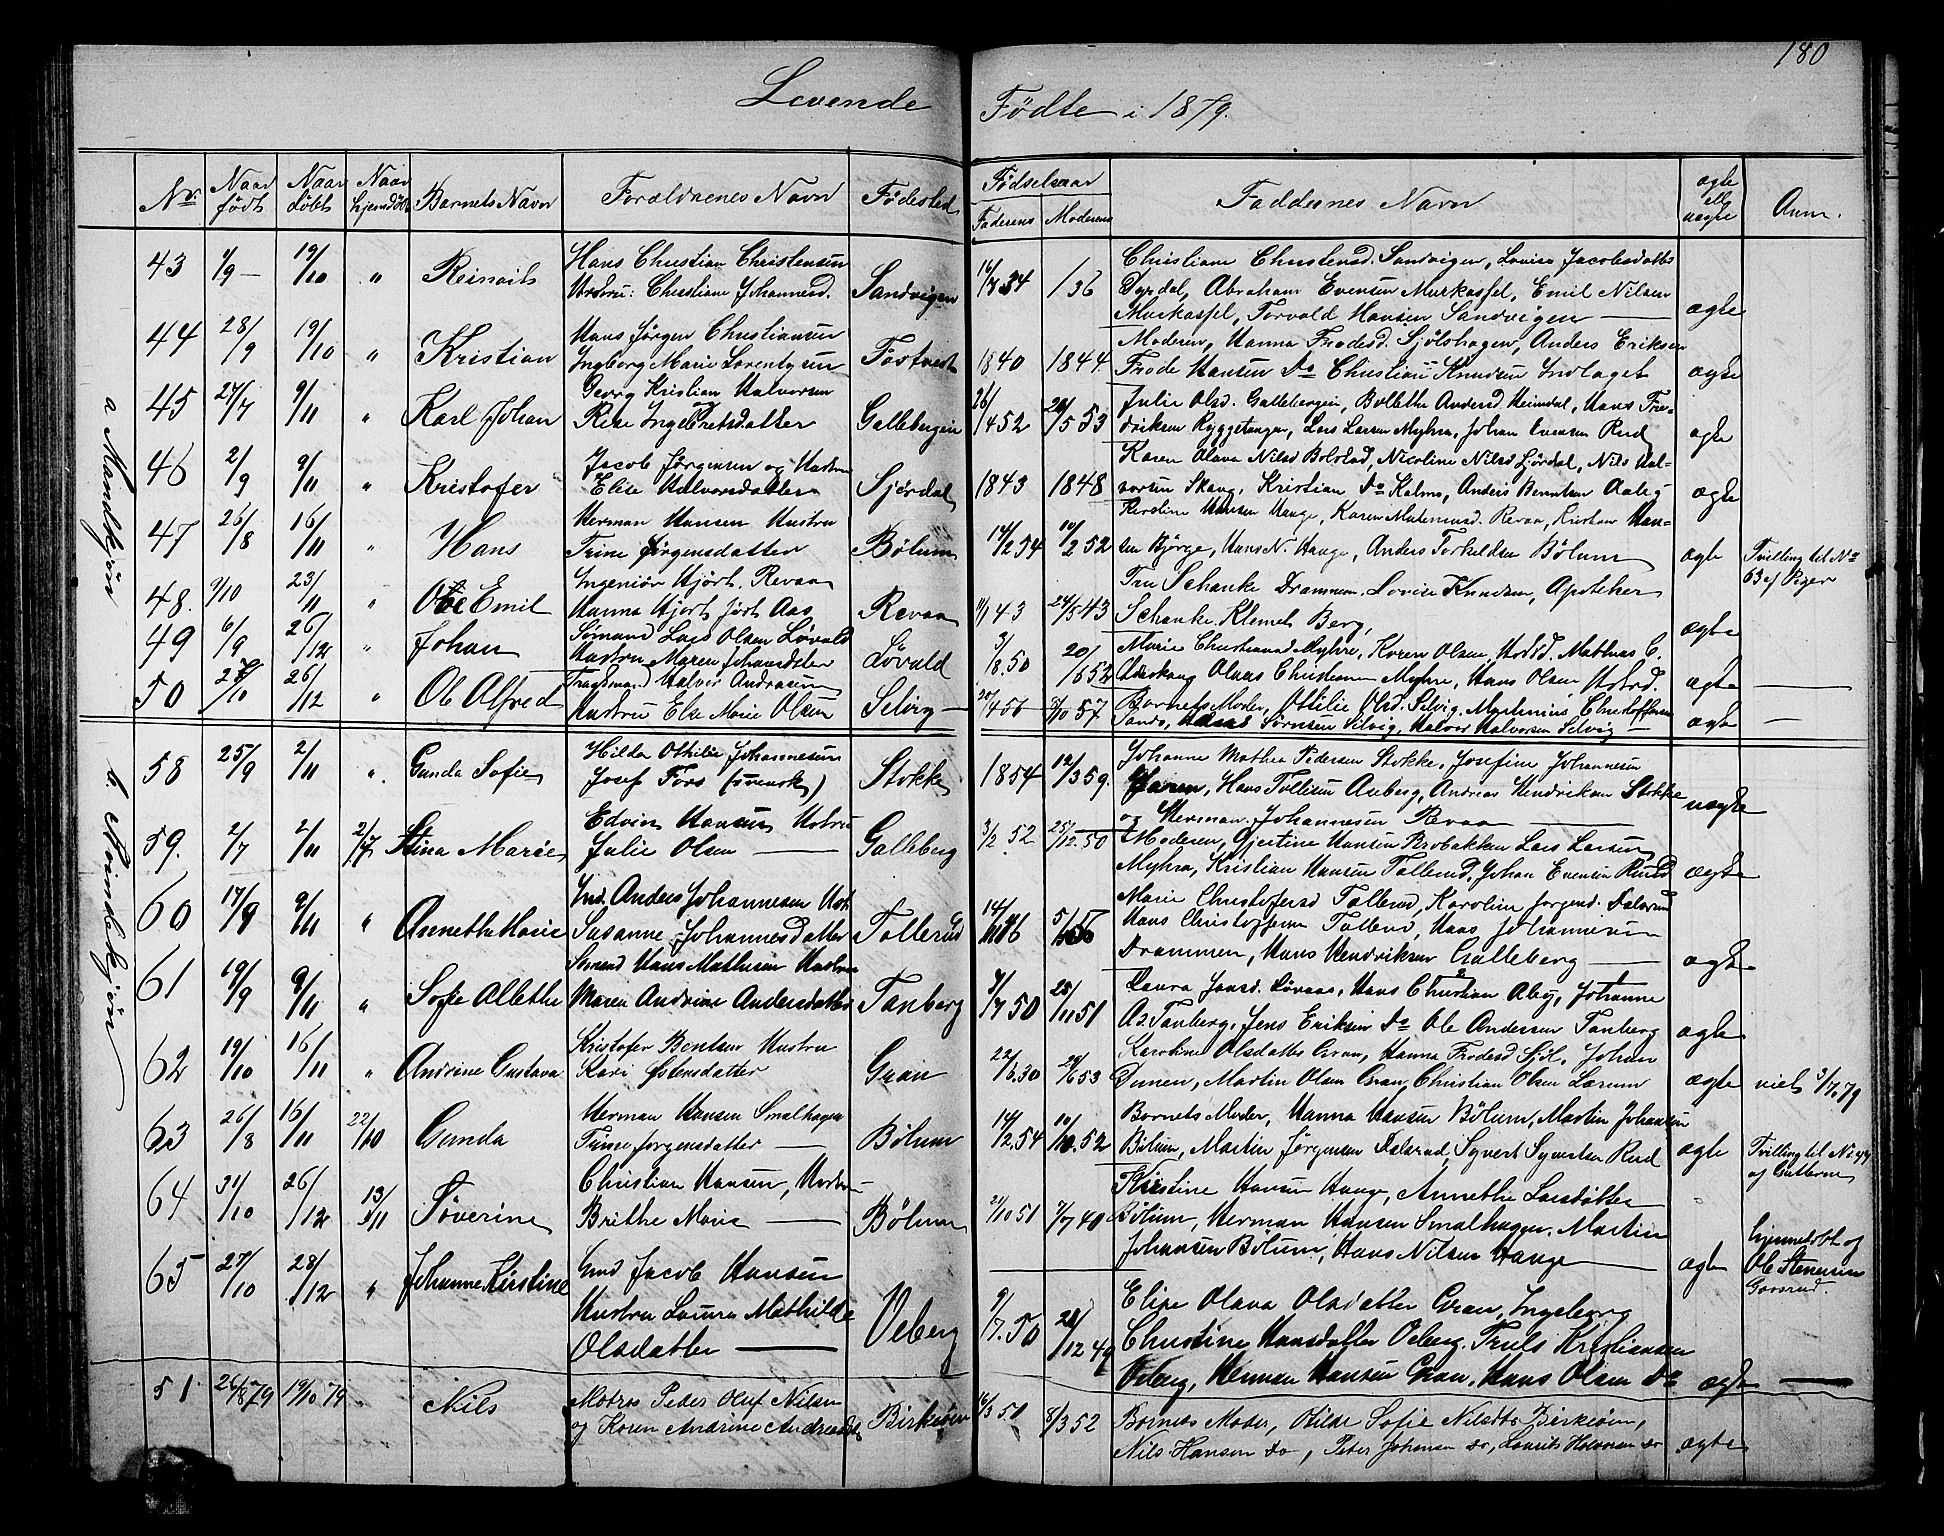 180
Levende Fødte i 1879.
No. Naar født Naar døbt Naar hjemdøbt Barnets Navn Forældrenes Navn Fødested
Fødselsaar Faderens Moderens Faddernes Navn ægte ell uægte Anm.
a Mandkjön
43 1/9 — 19/10 " Hans Christian Christensen
Hustru: Christiane Johannesd. Sandvigen
Christiane Christensd. Sandvigen, Lovise Jacobsdatter
Dyrdal, Abraham Evensen Murkassel, Emil Nilsen
Murkassel, Torvald Hansen Sandvigen — ægte
44 28/9 19/10 " Kristian Hans Jørgen Christiansen
Ingeborg Marie Lorentzen 1840 1844
Moderen, Hanna Frodesd. Sjølshagen, Anders Eriksen
Frode Hansen Do Christian Knudsen Indlaget ægte
45 27/7 9/11 " Karl Johan Georg Kristian Halvorsen
Ingebretsdatter Gallebergeie
Julie Olsd. Gallebergeie, Bolethe Andersd Heimdal, Hans Fre-
driksen Ryggetangen, Lars Larsen Myhra, Johan Evensen Rud ægte
46 2/9 9/11 " Kristofer Jacob Jørgensen og Hustru
Elise Halvorsdatter 1843 1848
Karen Olava Nilsd Bolstad, Nicoline Nilsd Sjørdal, Nils Hal-
vorsen Skaug, Kristian Do Kalmo, Anders Berntsen Aaby ægte
47 26/8 16/11 " Hans Herman Hansen Hustru
Trine Jørgensdatter Bølum 14/2 54 10/2 52
Karoline Hansen Hauge, Karen Revaa, Kristian Han-
sen Bjørge, Hans N. Hauge, Anders Torkildsen Bølum ægte
Tvilling til No
63 af Piger
48. 9/10 23/11 " Ove Emil Ingeniør Hjort, Revaa
Hanna Hjort født Aas Revaa 11/1 43 24/5 43
Fru Schanke Drammen, Lovise Knudsen, Apotheker
Schanke, Klemet Berg, ægte
49 6/9 26/12 " Johan Sømand Lars Olsen Løvald
Hustru Maren Løvald 3/8. 50
Marie Christiansd Myhre, Karen Olsen, Mathias C.
Christiansen Myhre, Hans Olsen ægte —
50 26/12 " Ole Alfred Halvor Andreasen
Hustru Else Marie Olsen Selvig —
Barnets Moder, Ottilie Olsd. Selvig, Christoffersen
Sando, Hans Sørensen Selvig, Halvor Halvorsen Selvig — ægte —
b. Kvindekjön
58 25/9 2/11 " Gunda Sofie Hilda Othilie Johannesen
Josef Fors (svensk) Stokke 1854 12/3 59.
Johanne Mathea Pedersen Stokke, Josefine Johannesen
Hans Tollesen Auberg, Andreas Hendriksen Stokke
og Herman Johannesen Revaa — uægte
59. 2/7 2/11 2/7 Stina Marie Edvin Hansen Hustru
Julie Olsen — Galleberg 3/2. 52 25/12. 50
Moderen, Gjertine Hansen Brobakken Lars Larsen
Myhra, Kristian Hansen Tollerud, Johan Evensen Rud ægte
60 17/9 9/11 " Annethe Marie Ind. Anders Johannesen Hust.
Susanne Johannesdatter Tollerud
Marie Christofersd Tollerud, Karoline Jørgensd. Dalsrud
Hans Christoffersen Tollerud, Hans Johannesen
Drammen, Hans Hendriksen Galleberg — ægte
61 19/9 9/11 " Sofie Allethe Hans Mathisen Hustru
Maren Andrine Andersdatter Tanberg 3/7 50 25/11 51
Laura Jansd. Løvaas, Hans Christian Aby, Johanne
As. Tanberg, Jens Eriksen Do Ole Andersen Tanberg ægte
62 19/10 16/11 " Andrine Gustava Kristofer Bentsen Hustru
Kari Østensdatter Gran 22/6. 30 29/6 53
Karoline Olsdatter Gran, Hanna Frodesd Sjøl, Johan
Dunen, Martin Olsen Gran, Christian Olsen Lerum ægte viet 3/7. 79
63 26/8 16/11 22/10 Gunda Herman Hansen Smalhagen
Trine Jørgensdatter — Bølum 14/2. 54 10/2. 52
Barnets Moder, Hanna Hansen Bølum, Martin Johansen
Bølum, Martin Jørgensen Dalsrud, Syvert Syvertsen Rud ægte
Tvilling til No. 47
af Gutterne
64 31/10 26/12 13/11 Søverine Christian Hansen, Hustru
Brithe Marie — Bølum 21/10 51 7/7 40
Kirstine Hansen Hauge, Annethe Larsdatter
Bølum, Herman Hansen Smalhagen, Martin
Johansen Bølum, Hans Nilsen Hauge — ægte
hjemmedøbt af
Ole Stenersen
65 27/10 28/12 " Johanne Kirstine Gmd Jacob Hansen
Hustru Laura Mathilde
Olsdatter — Oeberg 9/7. 50 28/12 49
Elise Olava Olsdatter Gran, Ingeborg
Christine Hansdatter Oeberg, Truls Kristiansen
Oeberg, Herman Hansen Gran, Hans Olsen Do ægte —
51. 26/8 79 19/10 79 " Nils Matros Peder Oluf Nilsen
og Karen Andrine Andreasd. 16/3 51 8/3 52
Barnets Moder, Hilde Sofie Nilsdt. Birkeøen,
Nils Hansen do, Peter Johansen do, Laurits Halvorsen do ægte